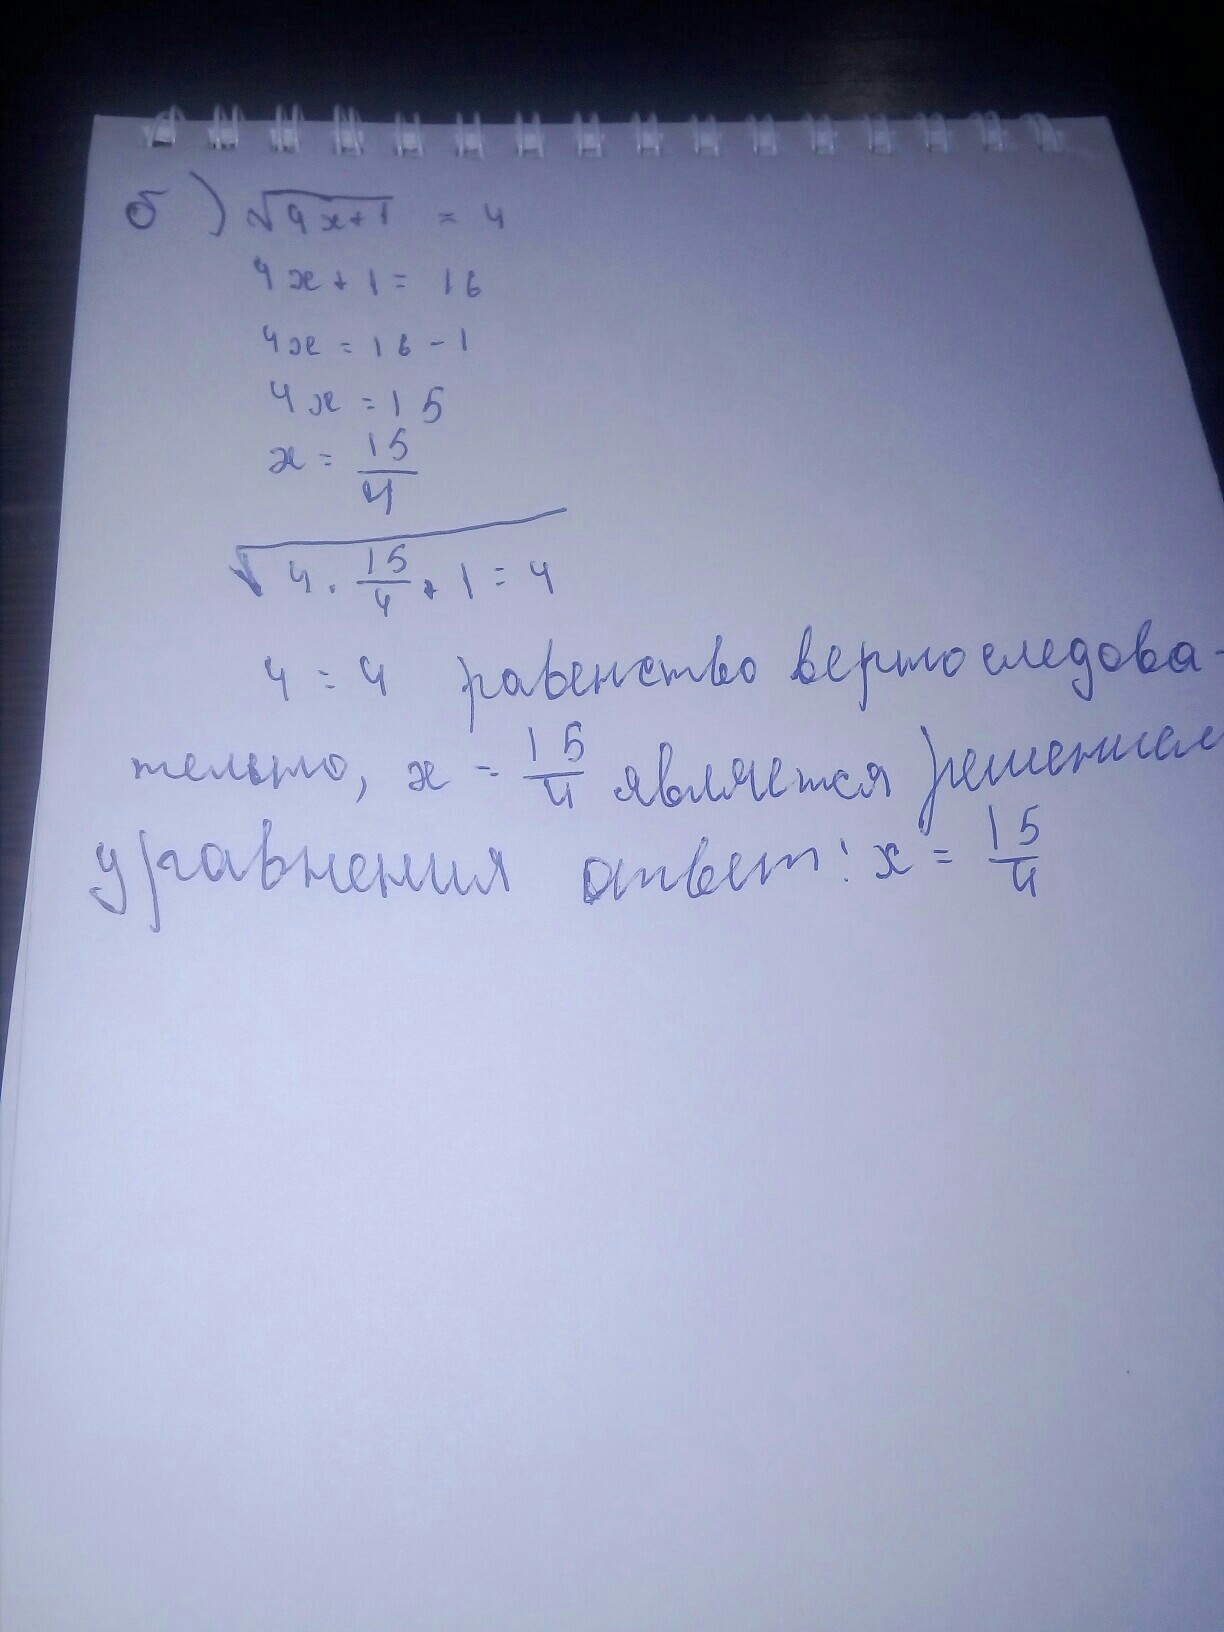 б) √4x+1 = 4
4x+1 = 16
4x = 16-1
4x = 15
x = 15/4
√4·15/4+1 = 4
4 = 4 равенство верно следова-
тельно, x = 15/4 является решением
уравнения ответ: x = 15/4